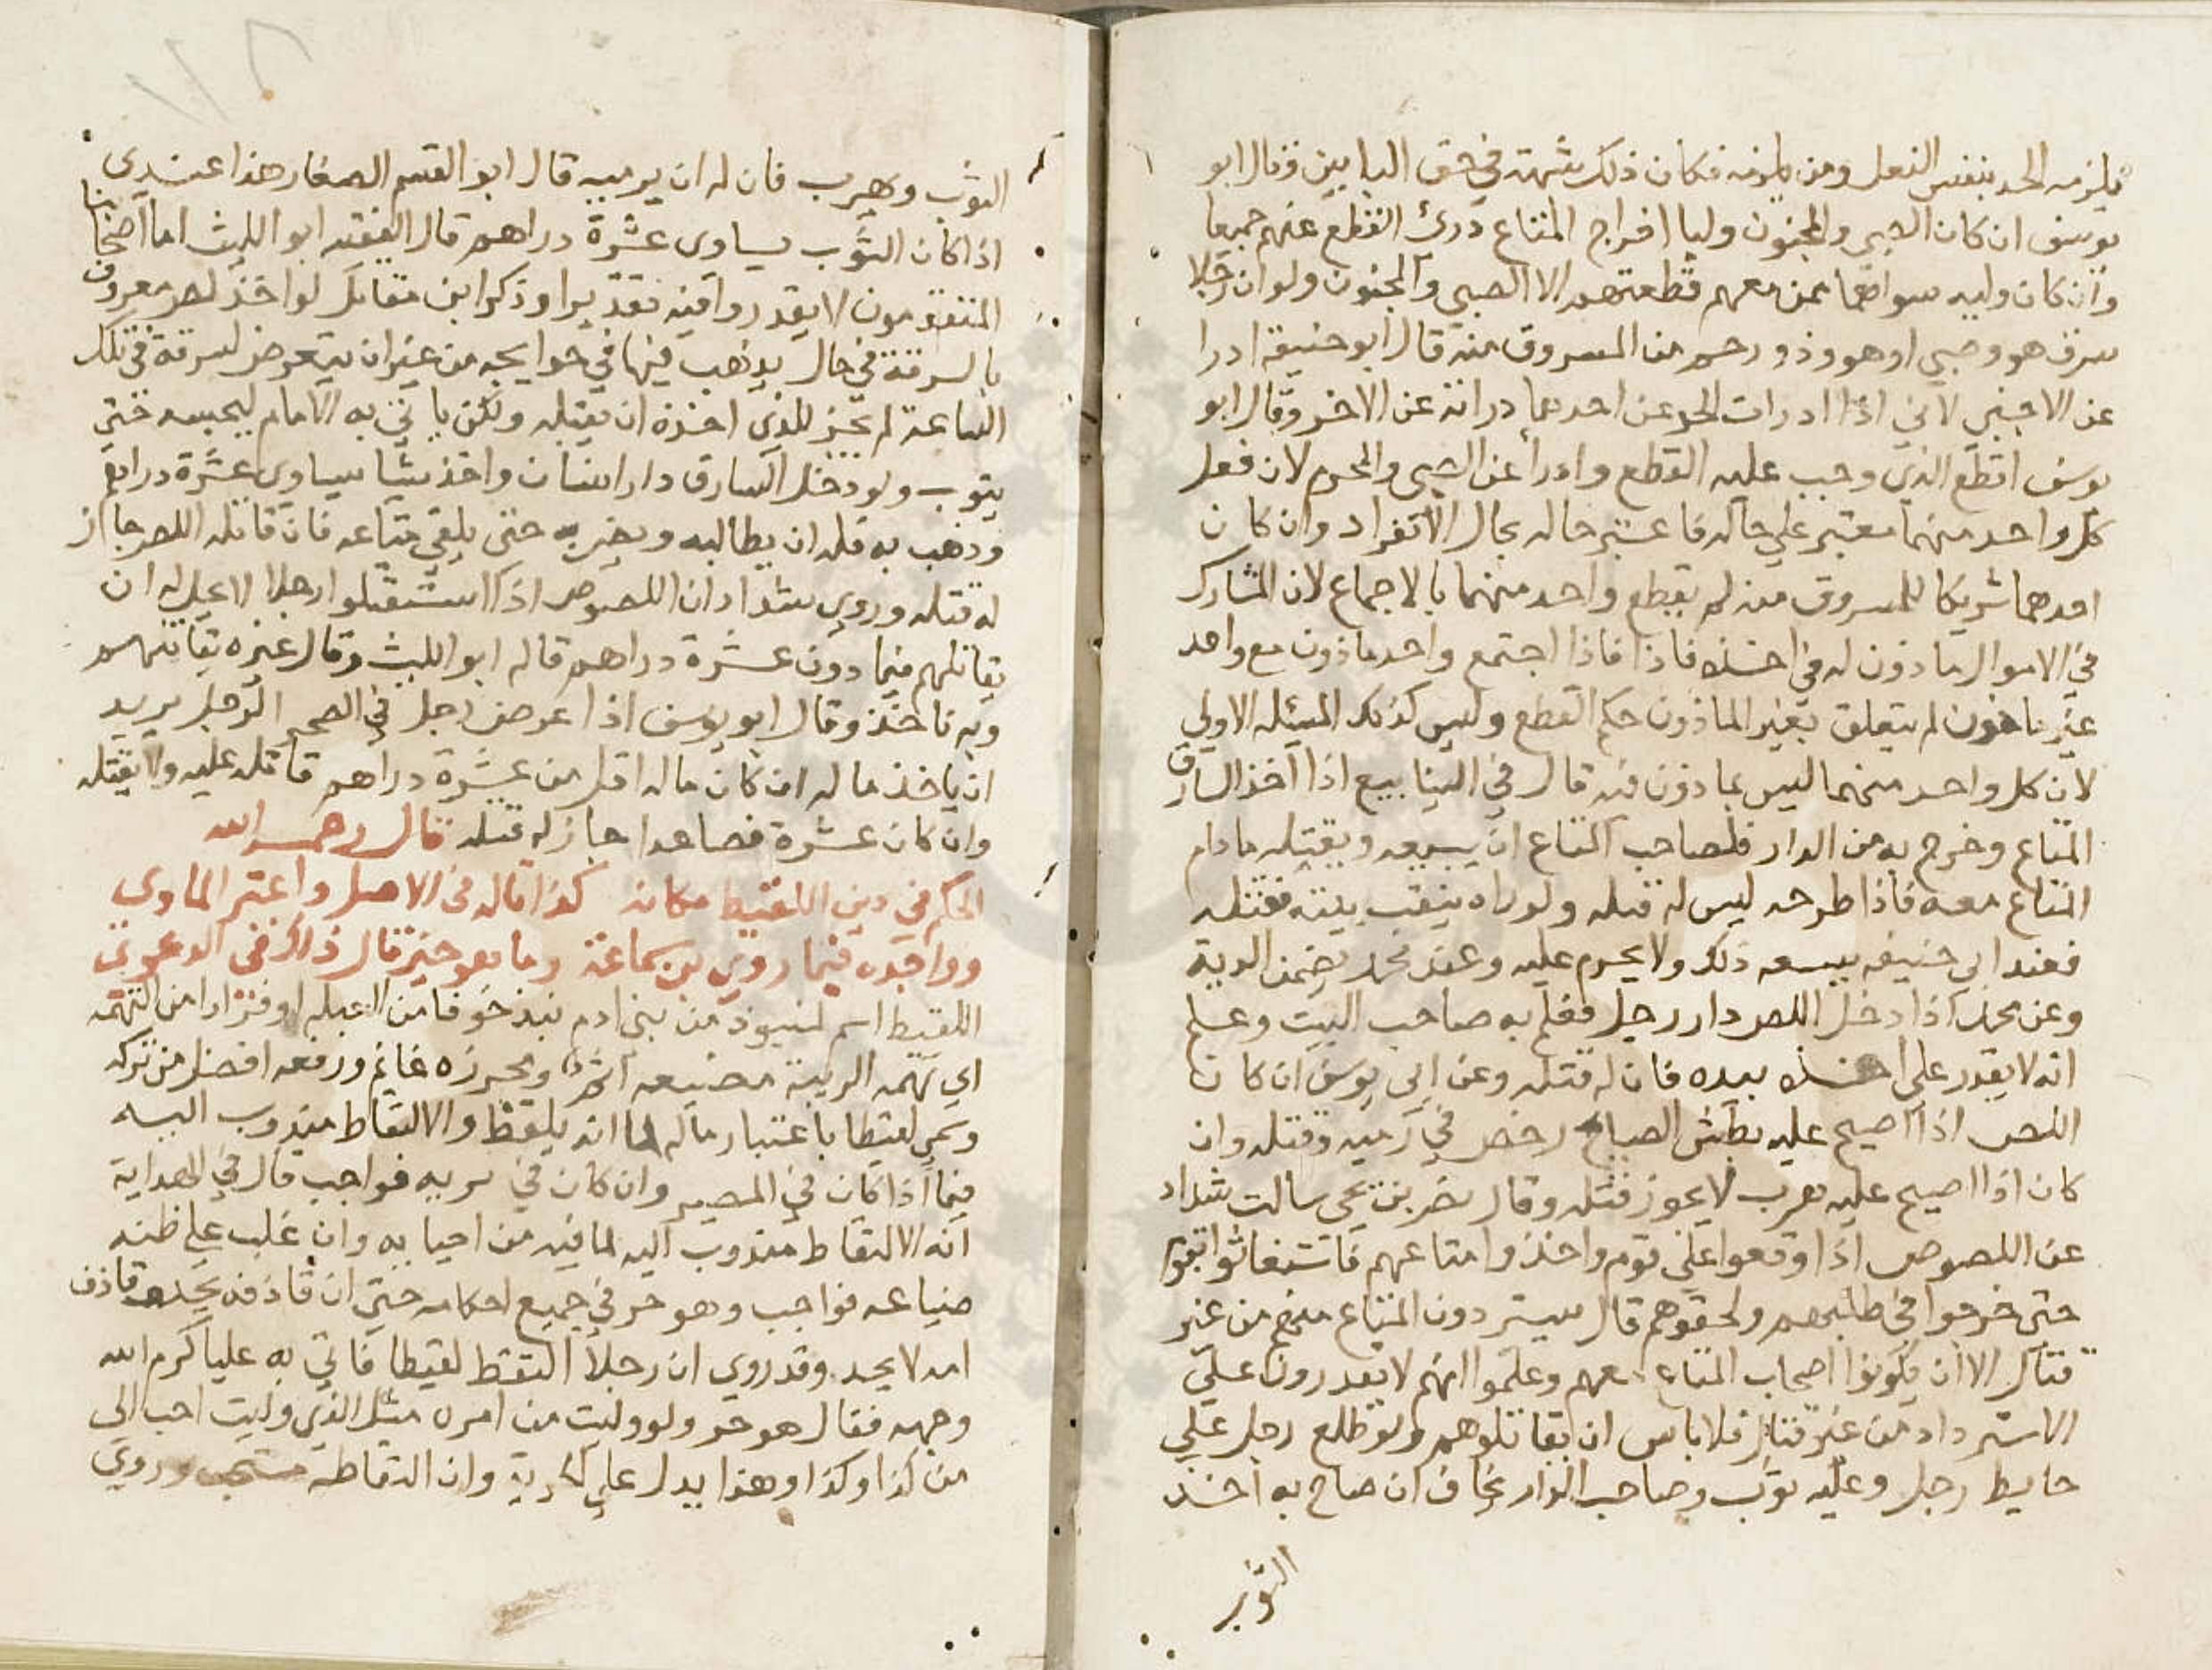 يلزمه الحد بنفس الفعل ومن يلزمه فكان ذلك شبهة في حق الباقين وقال ابو
يوسف ان كان الصبي والمجنون وليا اخراج المتاع درئ القطع عنهم جميعا
وان كان وليه سواهما ممن معهم قطعتهم الا الصبي والمجنون ولو ان رجلا
سرق هو وصبي او هو وذو رحم من المسروق منه قال ابو حنيفة ادرا
عن الاجنبي لاني اذا ادرات الحد عن احدهما دراته عن الاخر وقال ابو
يوسف اقطع الذي وجب عليه القطع وادرأ عن الصبي والمحرم لان فعل
كل واحد منهما معتبر علي حاله فاعتبر حاله بحال الانفراد وان كان
احدهما شريكا للمسروق منه لم يقطع واحد منهما بالاجماع لان المشارك
في الاموال ماذون له في اخذه فاذا اجتمع واحد ماذون مع واحد
غير ماذون لم يتعلق بغير الماذون حكم القطع وليس كذلك المسئله الاولي
لان كل واحد منهما ليس بماذون فيه قال في الينابيع اذا اخذ السارق
المتاع وخرج به من الدار فلصاحب المتاع ان يتبعه ويقتله مادام
المتاع معه فاذا طرحه ليس له قتله ولو راه ينقب بيته فقتله
فعند ابي حنيفه يسعه ذلك ولا يحرم عليه وعند محمد يضمن الدية
وعن محمد اذا دخل اللص دار رجل فعلم به صاحب البيت وعلم
انه لا يقدر علي اخذه بيده فان له قتله وعن ابي يوسف ان كان
اللص اذا اصيح عليه بطش الصياح رخص في رميه وقتله وان
كان اذا اصيح عليه هرب لا يجوز قتله وقال نضر بن يحي سالت شداد
عن اللصوص اذا وقعوا علي قوم واخذوا متاعهم فاستغاثوا بقوم
حتي خرجوا في طلبهم ولحقوهم قال يستردون المتاع منهم من غير
قتال الا ان يكونوا اصحاب المتاع معهم وعلموا انهم لا يقدرون علي
الاسترداد من غير قتال فلا باس ان يقاتلوهم ولو طلع رجل علي
حايط رجل وعليه ثوب وصاحب الدار يخاف ان صاح به اخذ
الثوب
الثوب وهرب فان له ان يرميه قال ابو القسم الصفار هذا عندي
اذا كان الثوب يساوي عشرة دراهم قال الفقيه ابو الليث اما اصحابنا
المتقدمون لا يقدروا فيه تقديرا وذكر ابن مقاتل لو اخذ لص معروف
بالسرقة في حال يذهب فيها في حوايجه من غير ان يتعرض لسرقة في تلك
الساعة لم يجز للذي اخذه ان يقتله ولكن ياتي به الامام ليحبسه حتي
يتوب ولو دخل السارق دار انسان واخذ شيئا يساوي عشرة دراهم
وذهب به فله ان يطالبه ويضربه حتي يلقي متاعه فان قاتله اللص جاز
له قتله وروي شداد ان اللصوص اذا استقبلوا رجلا لا يحل له ان
يقاتلهم فيما دون عشرة دراهم قاله ابو الليث وقال غيره يقاتلهم
وبه ناخذ وقال ابو يوسف اذا عرض رجل في الصحرا لرجل يريد
ان ياخذ ماله ان كان ماله اقل من عشرة دراهم قاتله عليه ولا يقتله
وان كان عشرة فصاعدا جاز له قتله قال رحمه الله
الحكم في دين اللقيط مكانه كذا قاله في الاصل واعتبر الماوي
وواجده فيما روي بن سماعة وما هو خير قال ذاك في الدعوي
اللقيط اسم لمنبوذ من بني ادم نبذ خوفا من العيله او فرارا من التهمة
اي تهمه الريبة مضيعه اثم ومحرزه غانم ورفعه افضل من تركه
وسمي لقيطا باعتبار ماله لما انه يلقط والالتقاط مندوب اليه
فيما اذا كان في المصر وان كان في بريه فواجب قال في الهداية
انه الالتقاط مندوب اليه لما فيه من احيايه وان غلب علي ظنه
ضياعه فواجب وهو حر في جميع احكامه حتي ان قاذفه يحد وقاذف
امه لا يحد وقد روي ان رجلا التقط لقيطا فاتي به عليا كرم الله
وجهه فقال هو حر ولو وليت من امره مثل الذي وليت احب الي
من كذا وكذا وهذا يدل علي الحرية وان التقاطه مستحب وروي